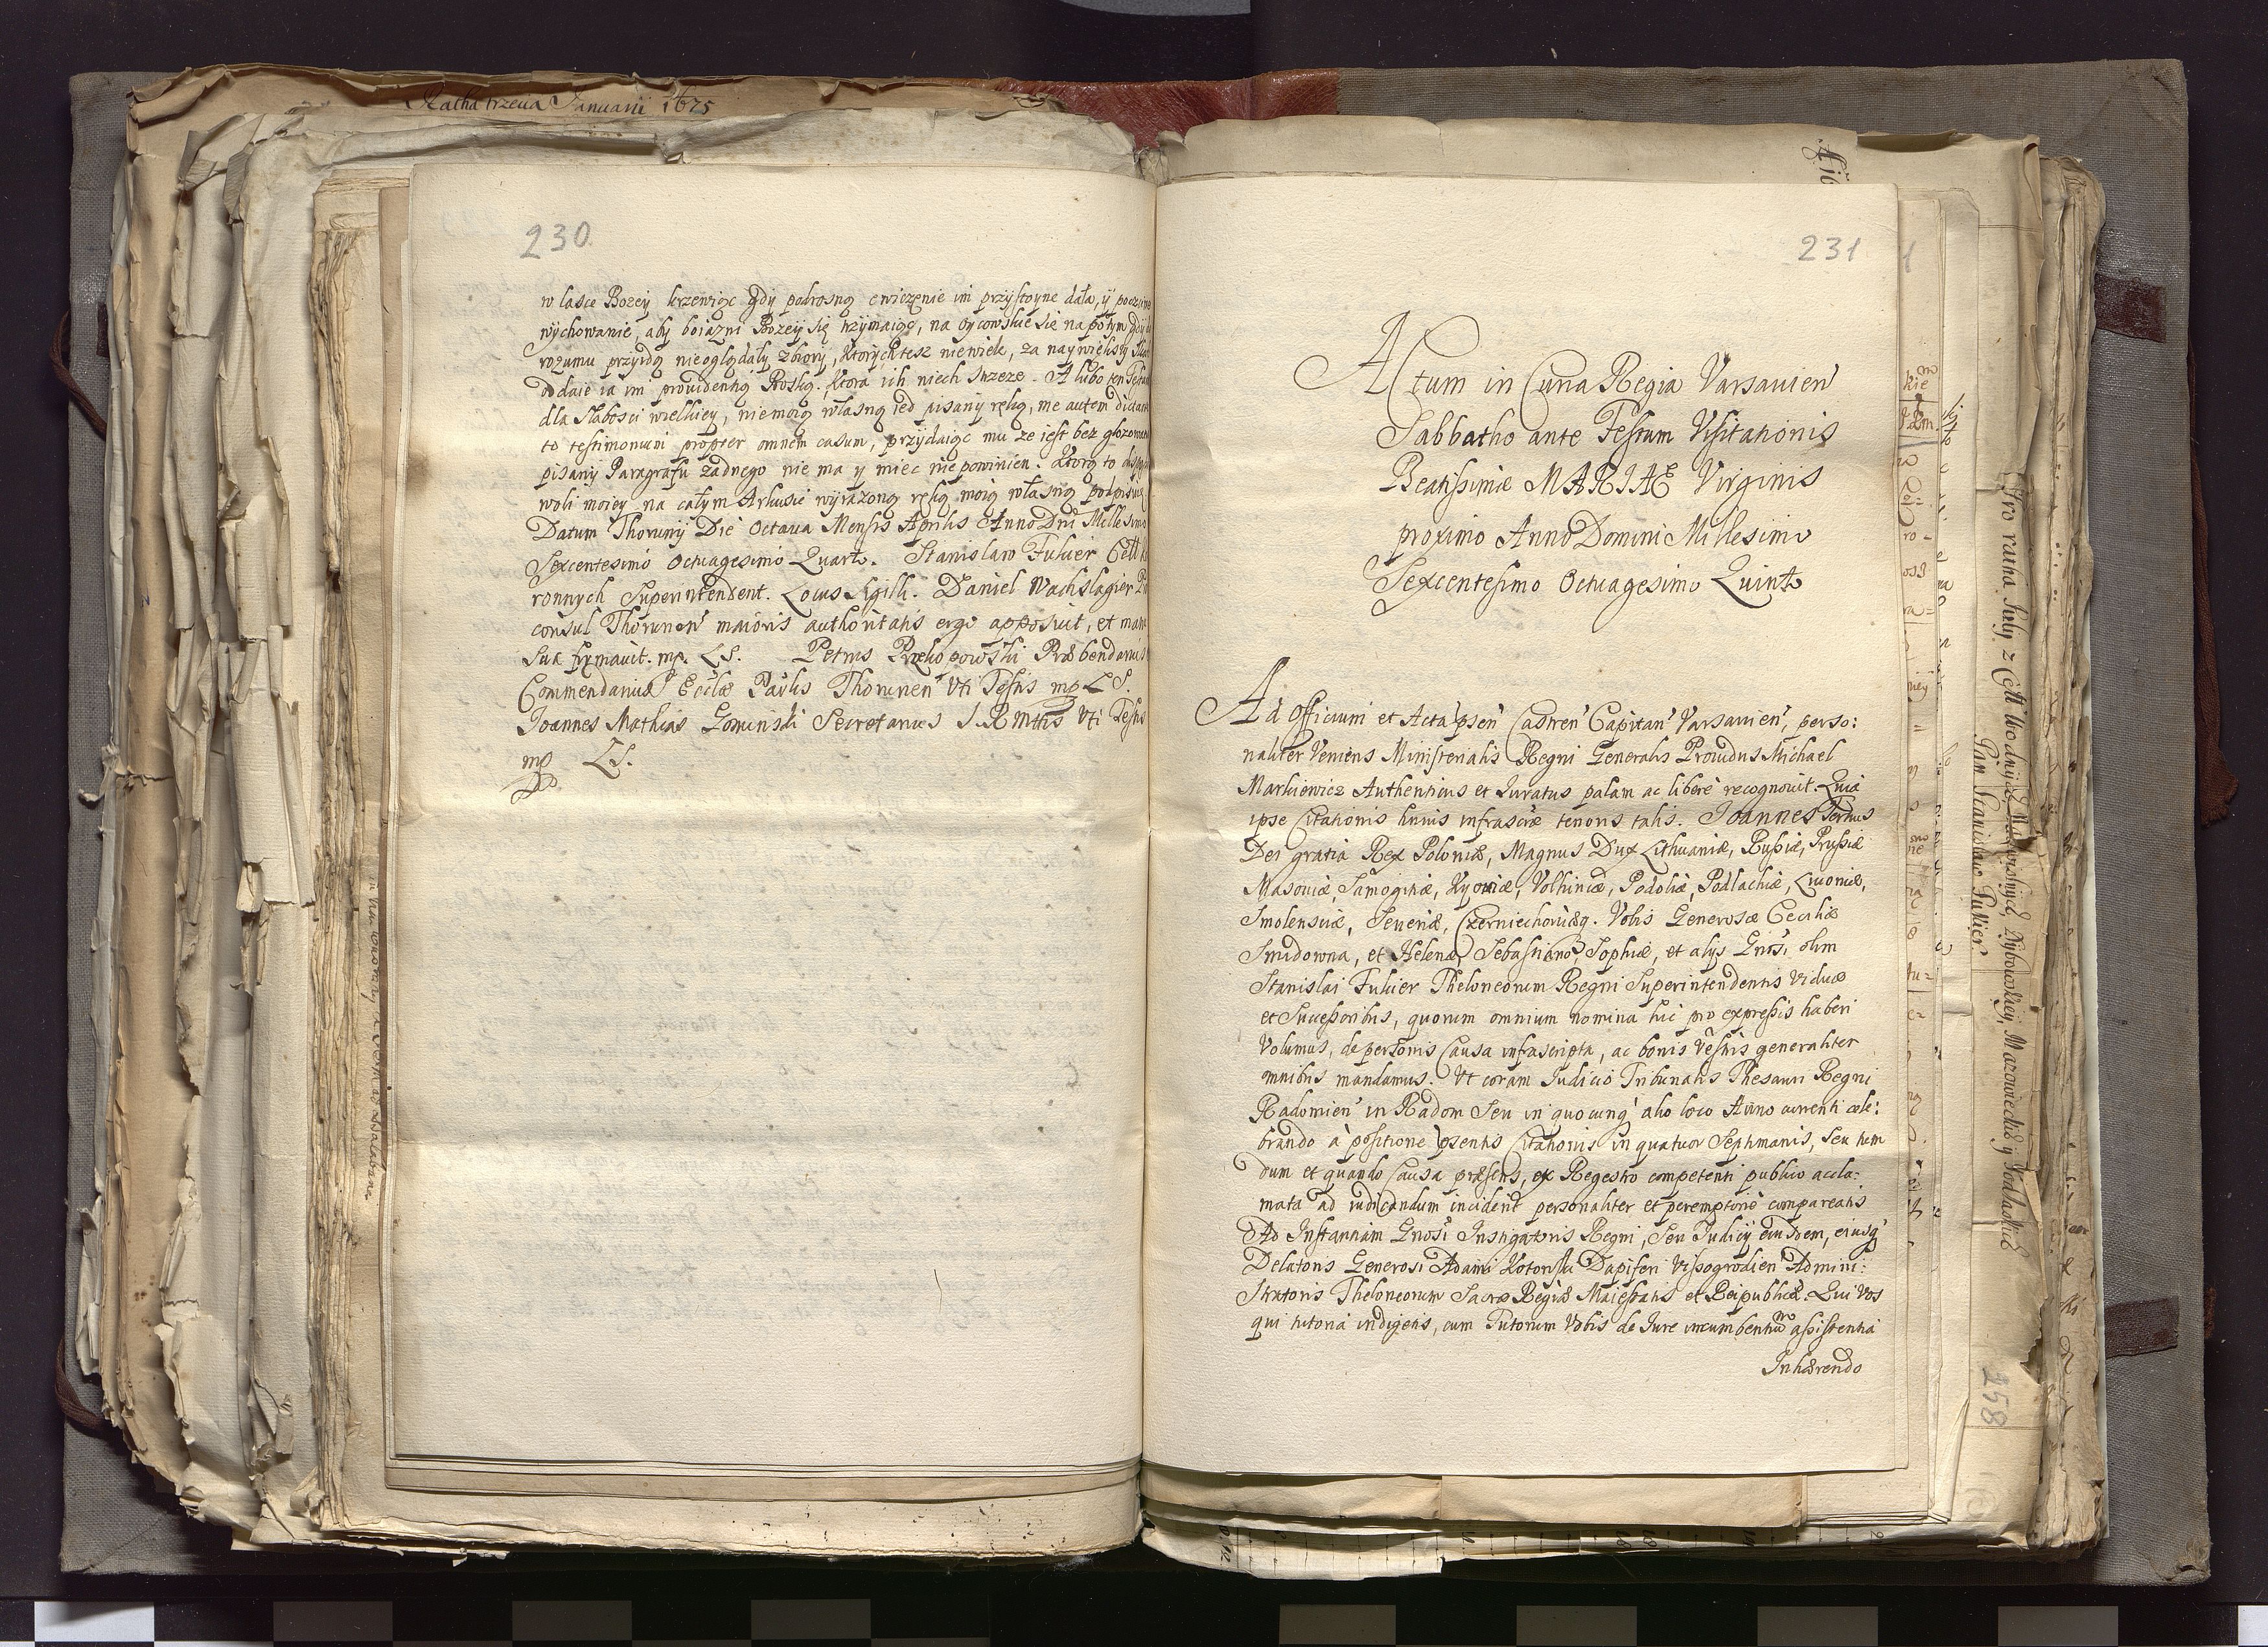 Ratha trzecia Januarii 1675
230
w łasce Bozey krzewiąc gdy podrosną cwiczenie im przystoyne dała, y poczciwe
wychowanie, aby boiazni Bozeij się trzÿmaiąc, na oycowskie się napotym gdy do
rozumu przyidą nieoglądały zbiory, ktorych tesz niewiele, za naywiększy
oddaie ia im prouidentią Boską, ktora ich niech strzeze. A lubo ten
dla słabosci wielkiey, niemoią własną iest pisany ręką, me autem
to testimonium propter omnem casum, przydaiąc mu ze iest bez
pisany Paragrafu zadnego nie ma y miec niepowinien. Ktorą to
woli moiey na całym Arkusie wyrazoną ręką moią własną podpisuię
Datum Thorunij Die Octaua Mensis Aprilis Anno Dni Millesimo
Sexcentesimo Octuagesimo Quarto. Stanislaw Fukier Cełł
ronnych Superintendent. Locus Sigilli. Daniel Wachslagier
consul Thorunen maioris authoritatis ergo apposuit, et manu
sua firmauit. mp. LS. Petrus Prekopowski Præbendarius
Commendarius Ecclæ Paulis Thorunen vti Testis mp LS.
Joannes Mathias Gominski Secretarius S R Mttis vti Testis
mp LS.
231
ACtum in Curia Regia Varsauien
Sabbatho ante Festum Visitationis
Beatissimæ MARIAE Virginis
proximo Anno Domini Millesimo
Sexcentesimo Octuagesimo Quinto
Ad Officium et Acta psen Castren Capitan Varsauien, perso:
naliter Veniens Ministerialis Regni Generalis Prouidus Michael
Markiewicz Authenticus et Iuratus palam ac liberè recognouit. Quia
ipse Citationis huius infrascræ tenoris talis. Joannes Tertius
Dei gratia Rex Poloniæ, Magnus Dux Lithuaniæ, Russiæ, Prussiæ
Masouiæ, Samogitiæ, Kyouiæ, Volhiniæ, Podoliæ, Podlachiæ, Liuoniæ,
Smolensciæ, Seueriæ, Czerniechouiæq. Vobis Generosæ Cecıliæ
Smidowna, et Helenæ, Sebastiano, Sophiæ, et alijs Gnosi olim
Stanislai Fukier Theloneorum Regni Superintendentis viduæ
et Successoribus, quorum omnium nomina hic pro expressis haberi
Volumus, de personis Causa infrascripta, ac bonis vestris generaliter
omnibus mandamus. Vt coram Iudicio Tribunalis Thesauri Regni
Radomien in Radom Seu in quocunq alio loco Anno currenti cele:
brando à positione psentis Citationis in quatuor Septimanis, seu tum
dum et quando Causa præsens, ex Regestro competenti publico accla:
mata ad iudicandum inciderit personaliter et peremptoriè compareatis
Ad Instantiam Gnosi Instigatoris Regni, seu Iudicij eiusdem, eiusq
Delatoris Generosi Adami Kotonski Dapiferi Vissogrodien Admini:
stratoris Theloneorum Sacræ Regiæ Maiestatis et Reipublicæ. Qui vos
qui tutoria indigetis, cum Tutorum Vobis de Iure incumbentium assistentia
Inhærendo
Pan Stanisław Fukier
258